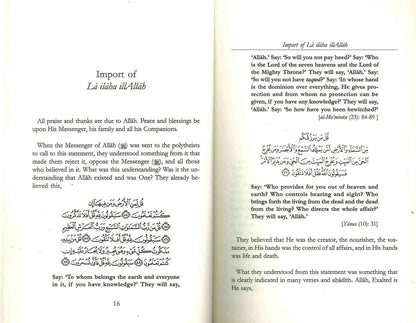 Import of
Lā ilāha illAllāh
All praise and thanks are due to Allāh. Peace and blessings be
upon His Messenger, his family and all his Companions.
When the Messenger of Allāh (ﷺ) was sent to the polytheists
to call to this statement, they understood from it something that
made them reject it, oppose the Messenger (ﷺ), and all those
who believed in it. What was this understanding? Was it the un-
derstanding that Allāh existed and was One? They already be-
lieved this,
قُل لِّمَنِ ٱلْأَرْضُ وَمَن فِيهَآ
إِن كُنتُمْ تَعْلَمُونَ ۝ سَيَقُولُونَ لِلَّهِ قُلْ أَفَلَا تَذَكَّرُونَ
Say: 'To whom belongs the earth and everyone
in it, if you have knowledge?' They will say,
16
Import of Lā ilāha illAllāh
'Allāh.' Say: 'So will you not pay heed?' Say: 'Who
is the Lord of the seven heavens and the Lord of
the Mighty Throne?' They will say, 'Allāh.' Say:
'So will you not have taqwā?' Say: 'In whose hand
is the dominion over everything, He gives pro-
tection and from whom no protection can be
given, if you have any knowledge?' They will say,
'Allāh.' Say: 'So how have you been bewitched?'
[al-Mu'minūn (23): 84-89]
قُلْ مَن يَرْزُقُكُم
مِّنَ ٱلسَّمَآءِ وَٱلْأَرْضِ أَمَّن يَمْلِكُ ٱلسَّمْعَ وَٱلْأَبْصَٰرَ وَمَن يُخْرِجُ
ٱلْحَىَّ مِنَ ٱلْمَيِّتِ وَيُخْرِجُ ٱلْمَيِّتَ مِنَ ٱلْحَىِّ وَمَن يُدَبِّرُ ٱلْأَمْرَ
فَسَيَقُولُونَ ٱللَّهُ فَقُلْ أَفَلَا تَتَّقُونَ
Say: 'Who provides for you out of heaven and
earth? Who controls hearing and sight? Who
brings forth the living from the dead and the dead
from the living? Who directs the whole affair?'
They will say, 'Allāh.'
[Yūnus (10): 31]
They believed that He was the creator, the nourisher, the sus-
tainer, in His hands was the control of all affairs, and in His hands
was life and death.
What they understood from this statement was something that
is clearly indicated in many verses and aḥādīth. Allāh, Exalted is
He says,